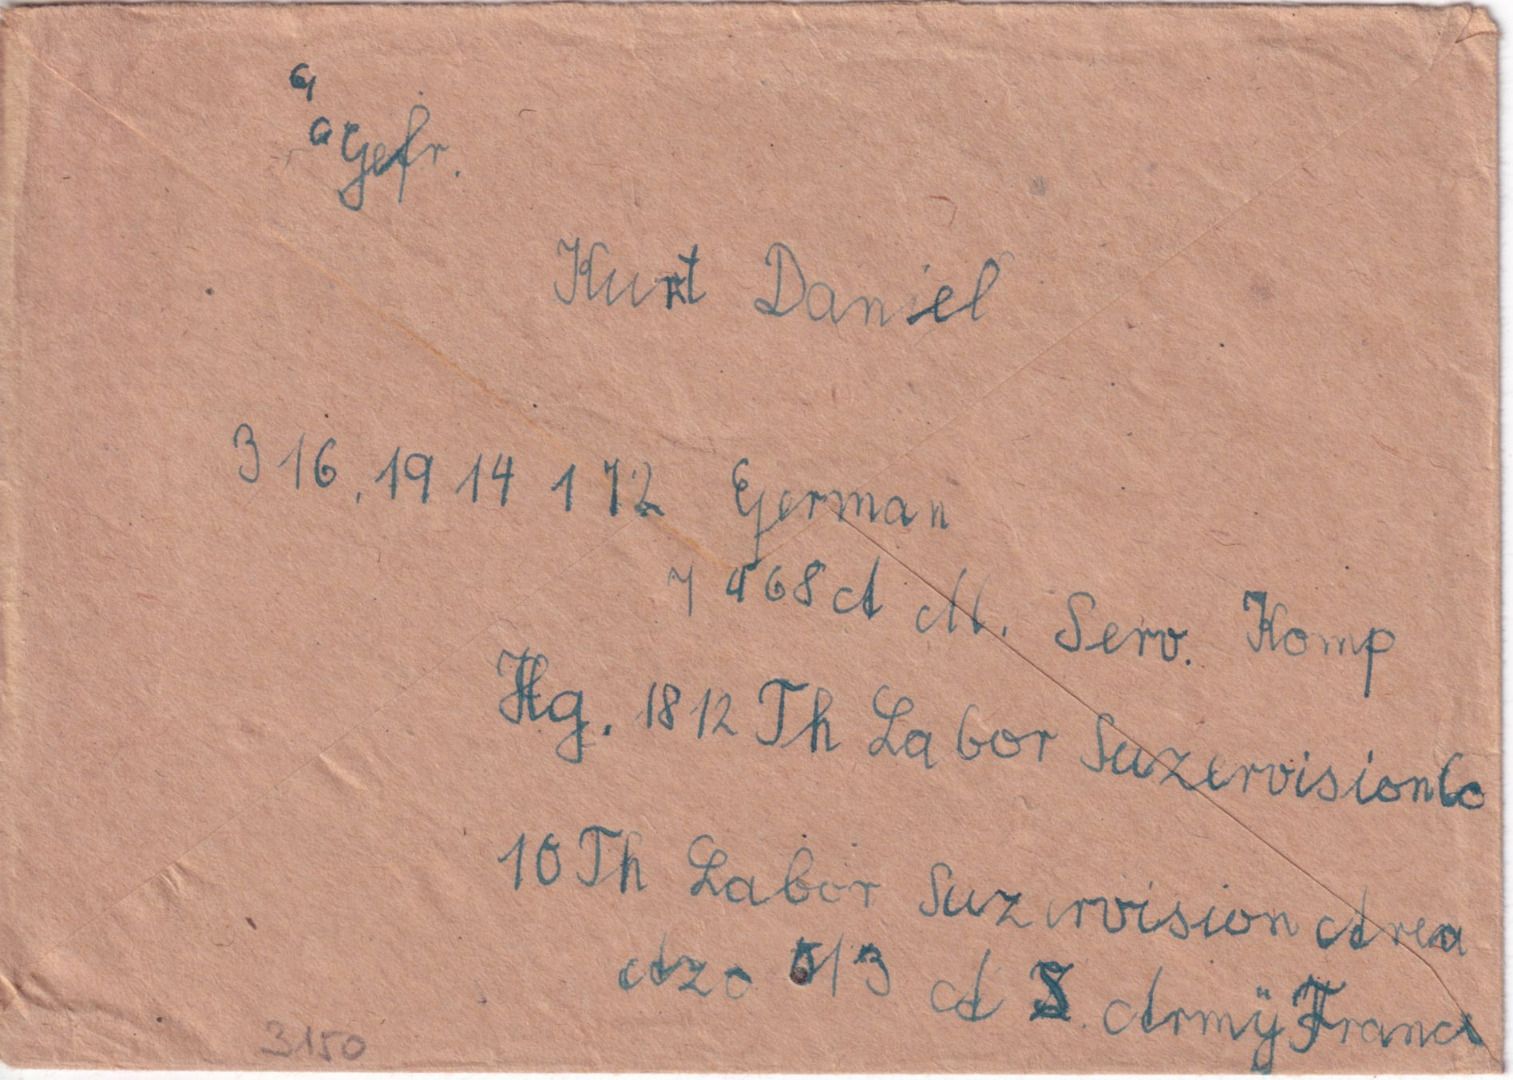 G
G Gefr.
Kurt Daniel
316.1914172 German
7468 A M. Serv. Komp
Hg. 1812 Th Labor Suzervision Co
10 Th Labor Suzervision Area
Azo 513 A S. Armÿ France
3150